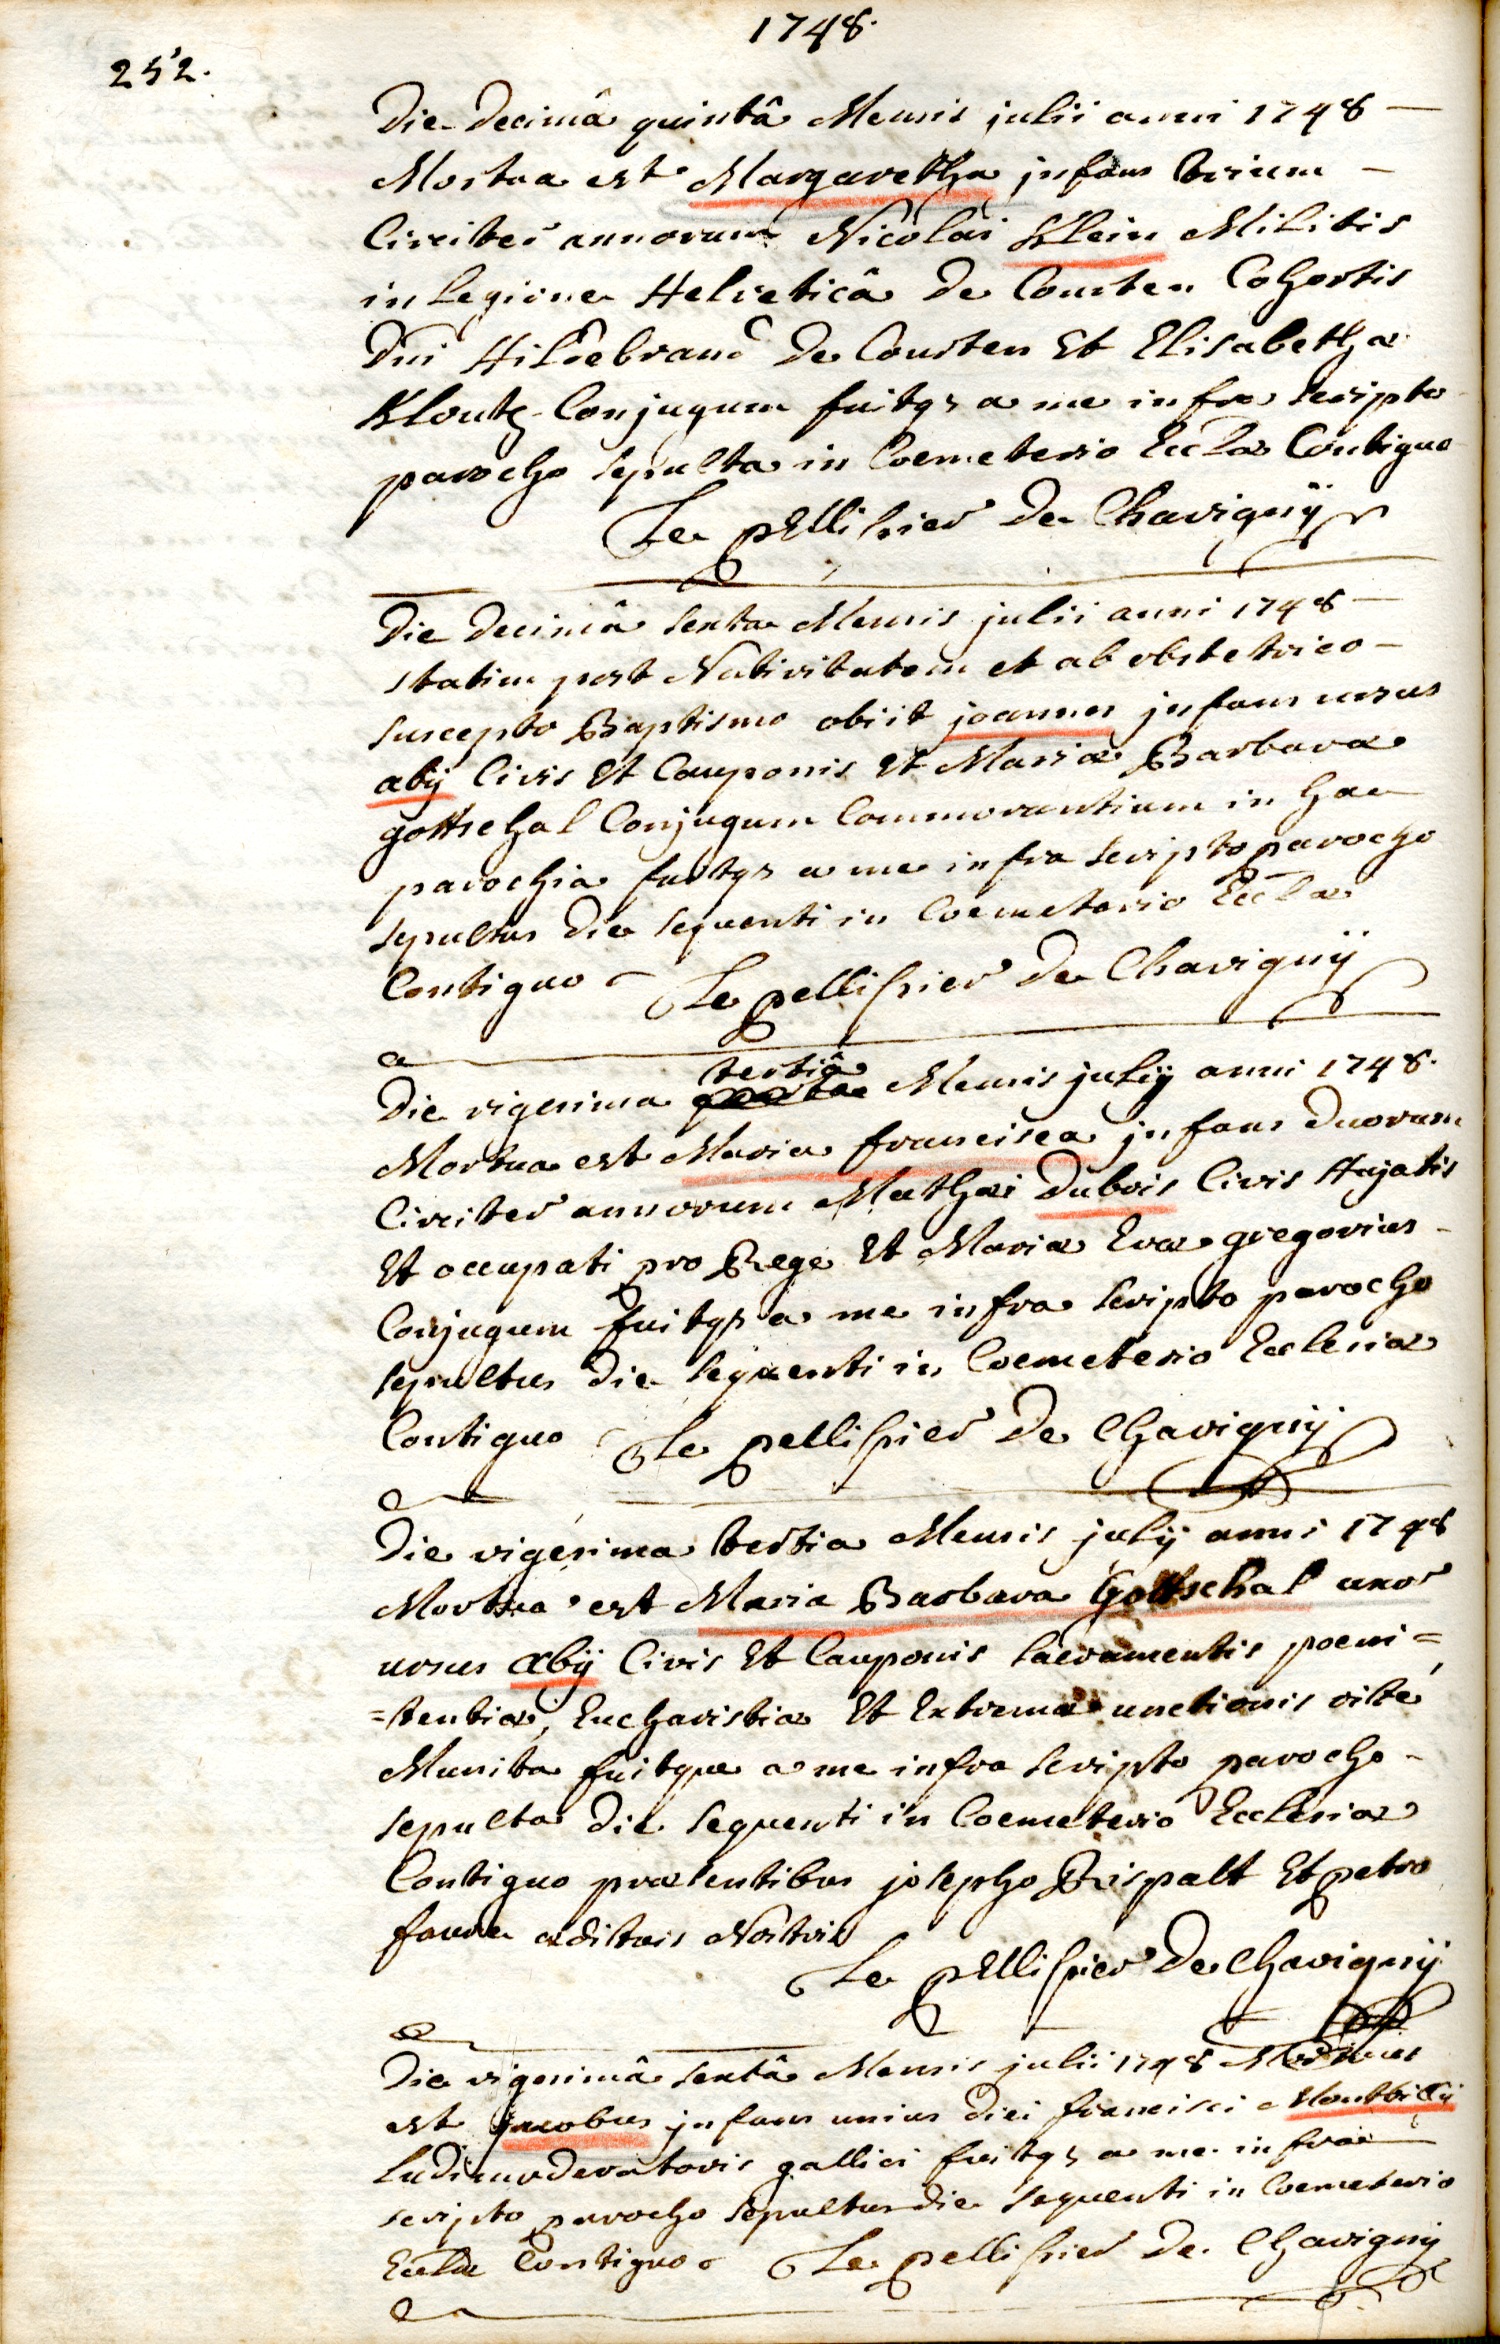 1748.
252.
Die Decimâ quintâ Mensis julii anni 1748 —
Mortua est Margaretha infans trium —
Circiter annorum Nicolai Klein Militis
in Legione Helveticâ De Courten Cohortis
Dni Hildebrand De Courten Et Elisabetha
Kloutz Conjugum fuitqz a me infra scripto
parocho sepulta in Coemeterio Eccla Contiguo
Le pellissier De Chavignÿ
Die Decimâ sexta Mensis julii anni 1748 —
statim post Nativitatem et ab obstetrico —
suscepto Baptismo obiit joannes infans ursus
abÿ Civis Et Cauponis Et Mariæ Barbara
gottschal Conjugum Commorantium in hac
parochia fuitqz a me infra scripto parocho
sepultus Die sequenti in Coemeterio Eccla
Contiguo Le pellissier De Chavignÿ
tertiâ
Die vigesima quarta Mensis julÿ anni 1748.
Mortua est Maria francisca infans Duorum
Circiter annorum Mathæi Dubois Civis Hujatis
Et occupati pro Rege Et Mariæ Eva gregorius —
Conjugum fuitqz a me infra scripto parocho
sepultus Die sequenti in Coemeterio Ecclesiæ
Contiguo Le pellissier De Chavignÿ
Die vigesima tertia Mensis julÿ anni 1748
Mortua est Maria Barbara Gottschal uxor
ursus abÿ Civis Et Cauponis sacramentis poeni=
=tentiæ, Eucharistiæ Et Extremæ unctionis rite
Munita fuitque a me infra scripto parocho —
sepulta Die sequenti in Coemeterio Ecclesiæ
Contiguo præsentibus josepho Rispalt Et petro
faure ædituis Nostris
Le pellissier De Chavignÿ
Die vigesimâ sextâ Mensis julii 1748 Mortuus
est jacobus infans unius Diei francisci Montbillÿ
Ludimoderatoris gallici fuitqz a me infra
scripto parocho sepultus die sequenti in Coemeterio
Eccla Contiguo Le pellissier De Chavignÿ